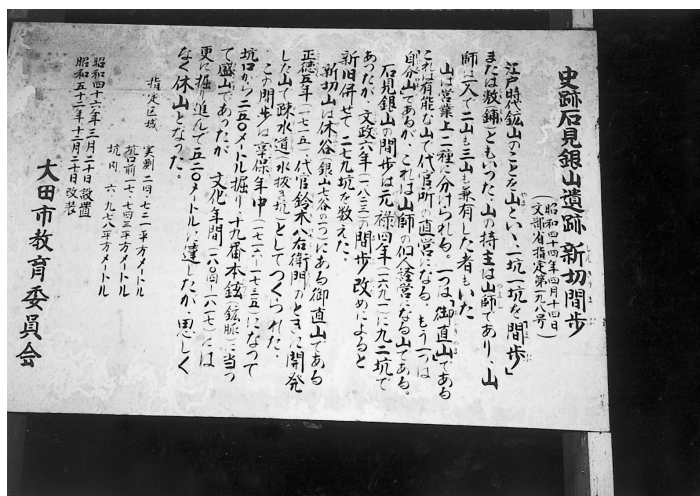 史跡石見銀山遺跡 新切間歩
(昭和四十四年四月十四日
文部省指定第一九八号)
江戸時代鉱山のことを山といい、一坑一坑を「間歩」
または敷(鋪)ともいった。山の持主は山師であり、山
師は一人で二山も三山も兼有した者もいた。
山は営業上二種に分けられる。一つは「御直山」である
これは有能な山で代官所の直営になる、もう一つは
自分山であるが、これは山師の個人経営になる山である。
石見銀山の間歩は元禄四年(一六九一)に九二坑で
あったが、文政六年(一八二三)の間歩改めによると
新旧併せて二七九坑を数えた。
新切山は休谷(銀山七谷の一つ)にある御直山である
正徳五年(一七一五)代官鈴木八右衛門のときに開発
した山で疎水道(水抜き坑)としてつくられた。
この間歩は享保年中(一七一六-一七三五)になって
坑口から二五〇メートル掘り、十九番本鉉(鉱脈)に当っ
て盛山であったが 文化年間(一八〇四-一八一七)には
更に掘り進んで五二〇メートルに達したが、思しく
なく休山となった。
指定区域 実測 二四・七二一平方メートル
坑口前 一七・七四三平方メートル
坑内 六・九七八平方メートル
昭和四十六年三月二十日設置
昭和五十二年十二月二十日改装
大田市教育委員会